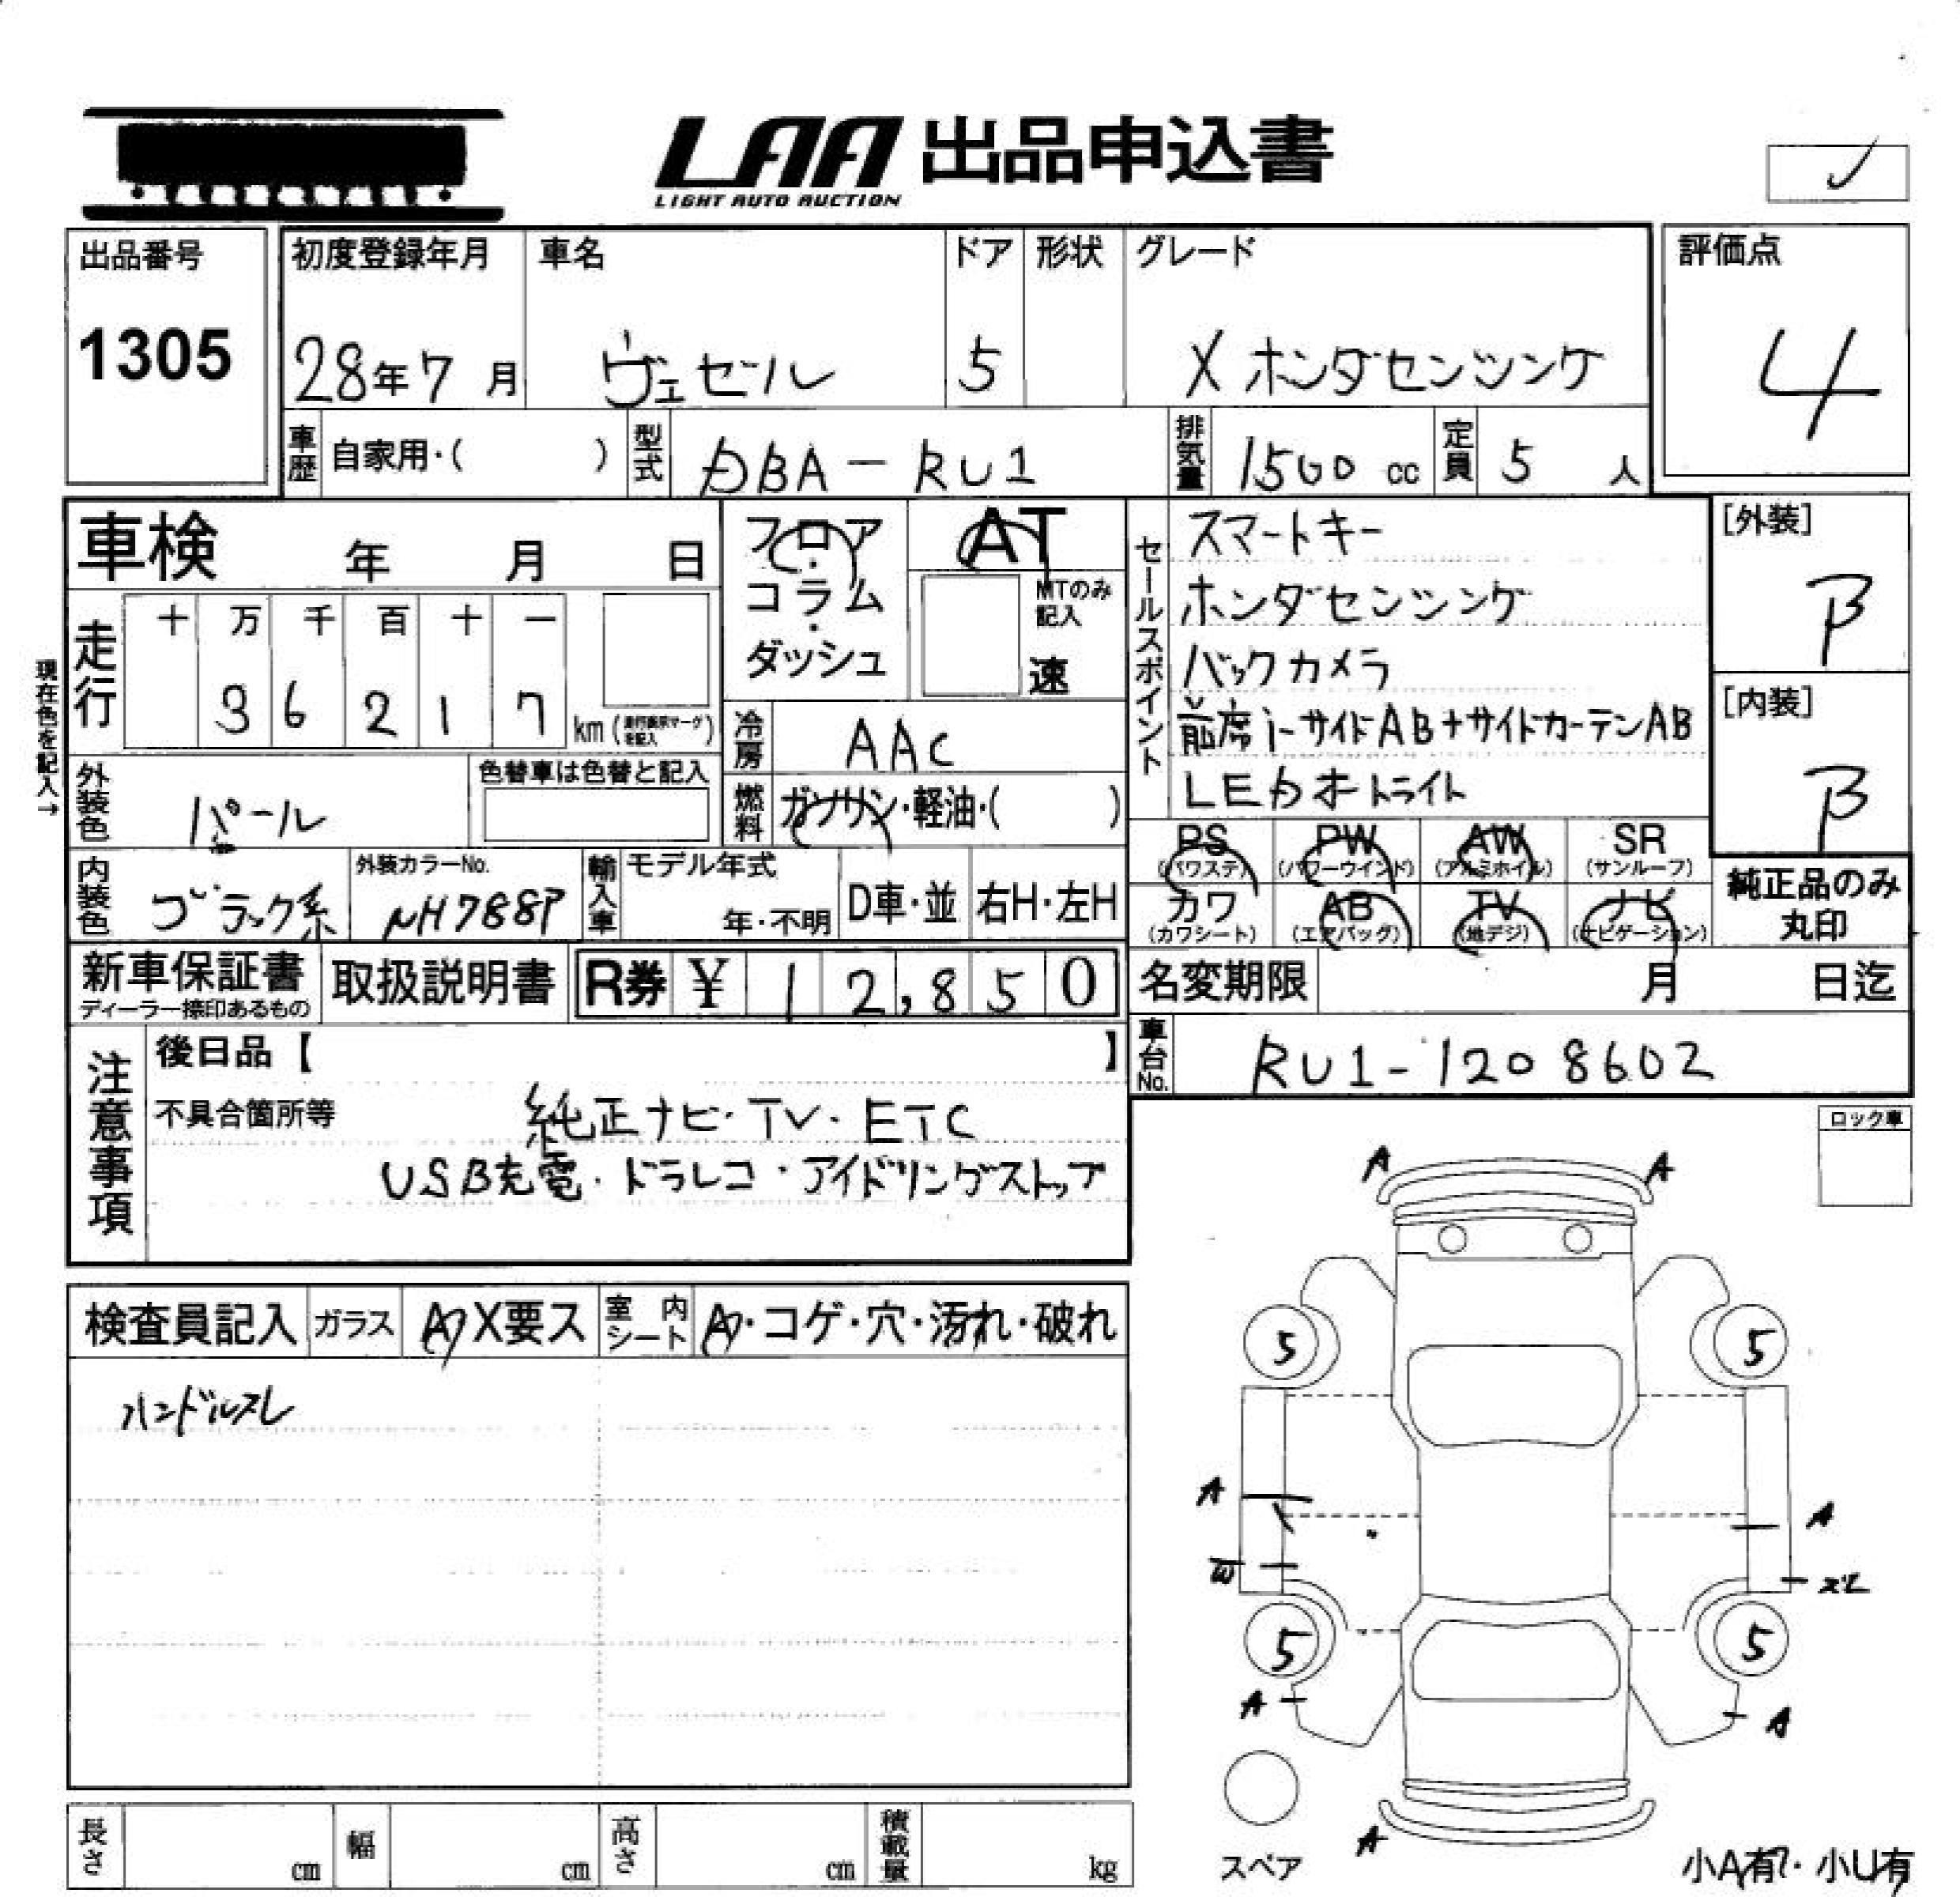 LAA 出品申込書
LIGHT AUTO AUCTION
出品番号
1305
初度登録年月
28年7月
車名
ヴェゼル
ドア
5
形状
グレード
X ホンダセンシング
評価点
4
車歴 自家用・( )
型式 DBA-RU1
排気量 1500 cc
定員 5 人
車検 年 月 日
フロア・コラム・ダッシュ
AT
MTのみ記入
速
セールスポイント
スマートキー
ホンダセンシング
バックカメラ
前席i-サイドAB+サイドカーテンAB
LEDオートライト
[外装]
B
[内装]
B
現在色を記入→
走行
十 万 千 百 十 一
3 6 2 1 7 km (走行表示マークを記入)
冷房 AAC
外装色 パール
色替車は色替と記入
燃料 ガソリン・軽油・( )
PS (パワステ) PW (パワーウインド) AW (アルミホイル) SR (サンルーフ)
カワ (カワシート) AB (エアバッグ) TV (地デジ) ナビ (ナビゲーション)
純正品のみ丸印
内装色 ブラック系
外装カラーNo.
NH788P
輸入車 モデル年式
年・不明
D車・並 右H・左H
新車保証書
ディーラー捺印あるもの
取扱説明書
R券 ¥ 12,850
名変期限 月 日迄
車台No. RU1-1208602
注意事項
後日品【 】
不具合箇所等
純正ナビ・TV・ETC
USB充電・ドラレコ・アイドリングストップ
ロック車
検査員記入 ガラス A X要ス 室内シート A・コゲ・穴・汚れ・破れ
ハンドルスレ
A A
5 5
A A
W スレ
5 5
A A
A
スペア
小A有・小U有
長さ cm 幅 cm 高さ cm 積載量 kg